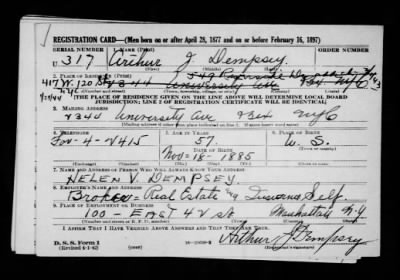 REGISTRATION CARD—(Men born on or after April 28, 1877 and on or before February 16, 1897)
SERIAL NUMBER 1. NAME (Print)
U 317 Arthur J. Dempsey
2. PLACE OF RESIDENCE (Print)
417 W. 120 2344 University Ave NYC
(THE PLACE OF RESIDENCE GIVEN ON THE LINE ABOVE WILL DETERMINE LOCAL BOARD
JURISDICTION; LINE 2 OF REGISTRATION CERTIFICATE WILL BE IDENTICAL)
3. MAILING ADDRESS
2344 University Ave NYC
4. TELEPHONE 5. AGE IN YEARS 6. PLACE OF BIRTH
For-4-2415 57 U.S.
DATE OF BIRTH
Nov-18-1885
7. NAME AND ADDRESS OF PERSON WHO WILL ALWAYS KNOW YOUR ADDRESS
HELEN V. DEMPSEY
8. EMPLOYER'S NAME AND ADDRESS
Broker - Real Estate Self.
9. PLACE OF EMPLOYMENT OR BUSINESS
100 - EAST 42 St. Manhattan N.Y
I AFFIRM THAT I HAVE VERIFIED ABOVE ANSWERS AND THAT THEY ARE TRUE.
D. S. S. Form 1
(Revised 4-1-42)
Arthur J Dempsey